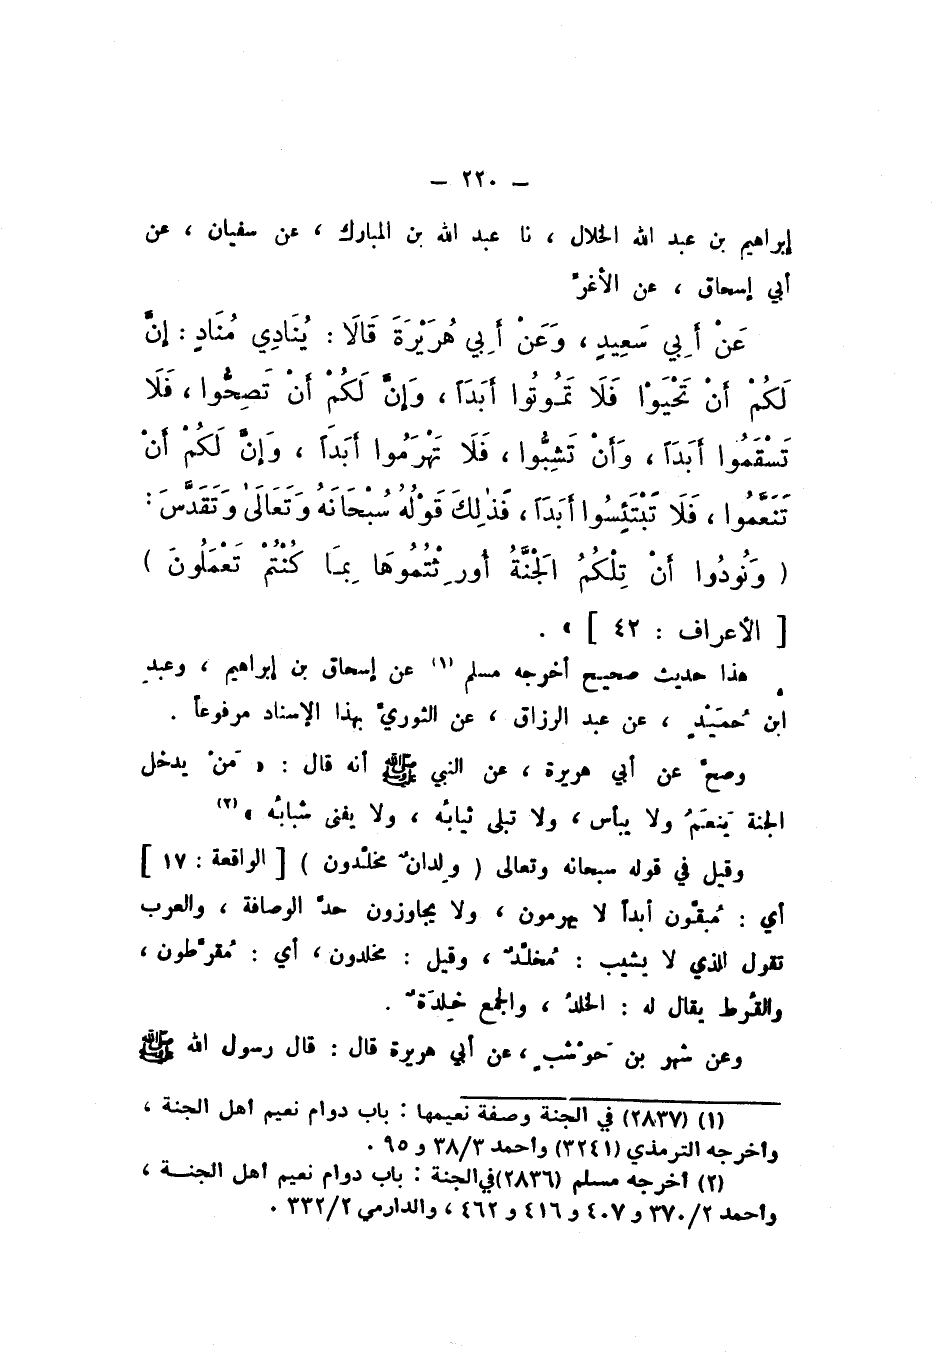 – ٢٢٠ –
إبراهيم بن عبد الله الخلال ، نا عبد الله بن المبارك ، عن سفيان ، عن
أبي إسحاق ، عن الأغرّ
عَنْ أَبِي سَعِيدٍ ، وَعَنْ أَبِي هُرَيْرَةَ قَالَا : يُنَادِي مُنَادٍ : إِنَّ
لَكُمْ أَنْ تَحْيَوْا فَلَا تَمُوتُوا أَبَدَاً ، وَإِنَّ لَكُمْ أَنْ تَصِحُّوا ، فَلَا
تَسْقَمُوا أَبَدَاً ، وَأَنْ تَشِبُّوا ، فَلَا تَهْرَمُوا أَبَدَاً ، وَإِنَّ لَكُمْ أَنْ
تَنَعَّمُوا ، فَلَا تَبْتَئِسُوا أَبَدَاً ، فَذٰلِكَ قَوْلُهُ سُبْحَانَهُ وَتَعَالَىٰ وَتَقَدَّسَ :
( وَنُودُوا أَنْ تِلْكُمُ الْجَنَّةُ أُورِثْتُمُوهَا بِمَا كُنْتُمْ تَعْمَلُونَ )
[ الأعراف : ٤٢ ] » .
هذا حديث صحيح أخرجه مسلم (١) عن إسحاق بن إبراهيم ، وعبدِ
ابن حُمَيْدٍ ، عن عبد الرزاق ، عن الثوريّ بهذا الإسناد مرفوعاً .
وصحّ عن أبي هريرة ، عن النبي ﷺ أنه قال : « مَنْ يدخل
الجنة يَنعَمُ ولا يبأس ، ولا تبلى ثيابُه ، ولا يفنى شبابُه » (٢)
وقيل في قوله سبحانه وتعالى ( وِلدانٌ مخلّدون ) [ الواقعة : ١٧ ]
أي : مُبقّون أبداً لا يهرمون ، ولا يجاوزون حدّ الوصافة ، والعرب
تقول الذي لا يشيب : مُخلّدٌ ، وقيل : مخلدون ، أي : مُقرّطون ،
والقُرط يقال له : الخلدُ ، والجمع خِلدَةٌ .
وعن شهر بن حَوْشبٍ ، عن أبي هريرة قال : قال رسول الله ﷺ
(١) (٢٨٣٧) في الجنة وصفة نعيمها : باب دوام نعيم أهل الجنة ،
وأخرجه الترمذي (٣٢٤١) وأحمد ٣٨/٣ و ٩٥ .
(٢) أخرجه مسلم (٢٨٣٦) في الجنة : باب دوام نعيم أهل الجنــة ،
وأحمد ٣٧٠/٢ و ٤٠٧ و ٤١٦ و ٤٦٢ ، والدارمي ٣٣٢/٢ .